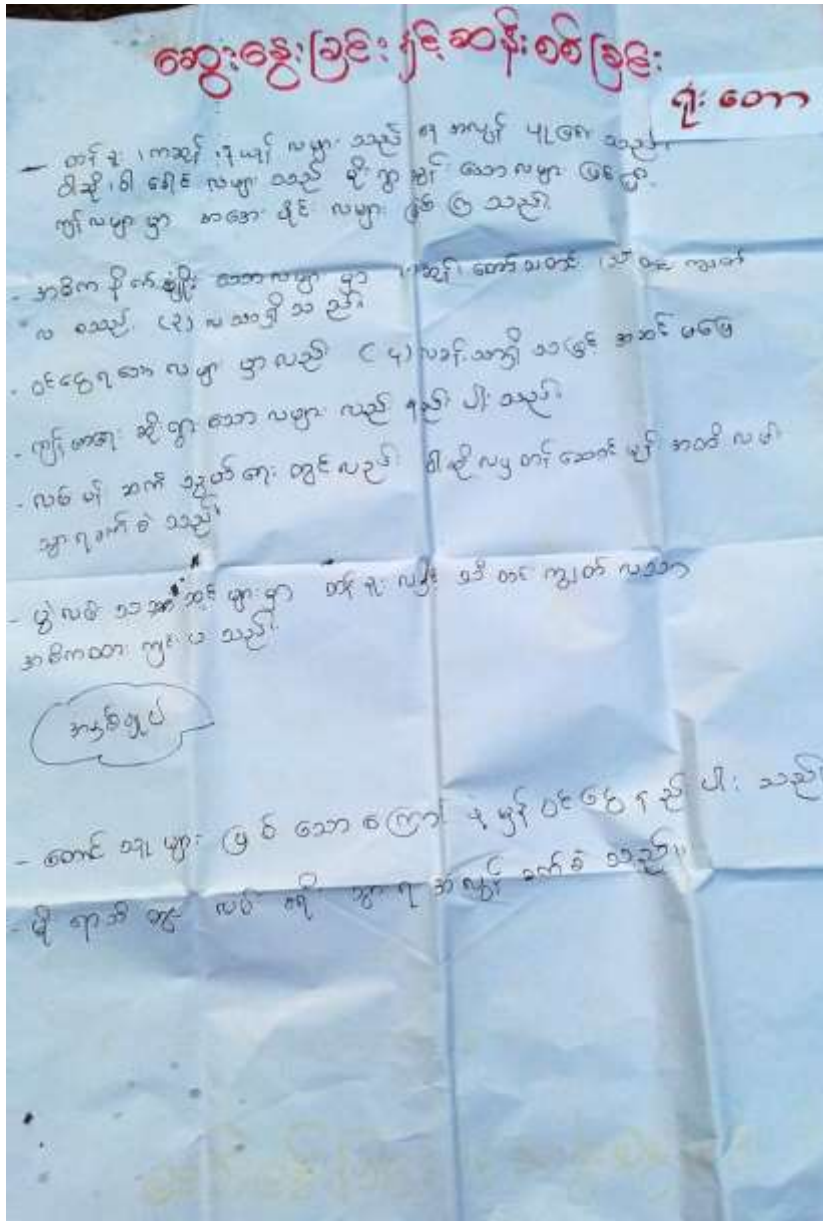 ဆွေးနွေးခြင်းနှင့်ဆန်းစစ်ခြင်း
ရိုးတော
- တန်ခူး၊ ကဆုန်၊ နယုန် လများ သည် ရေ အလွန်
ဝါဆို၊ ဝါခေါင် လများ သည် မိုး ရွာသွန်း သောလများ ဖြစ်ပြီး
ကျန်လများမှာ အအေးပိုင်း လများ ဖြစ် ကြ သည်။
- အဓိက စိုက်ပျိုး သောလများ မှာ သီတင်းကျွတ်
လ စသည့် (၃) လ သာရှိ သည်။
- ဝင်ငွေရသော လများ မှာလည်း (၄) လခန့်သာရှိ သဖြင့် အဆင်မပြေ
- ကျန်းမာရေး ဆိုးရွားသော လများ လည်း နည်းပါး သည်။
- လမ်းပန်း ဆက်သွယ်ရေး တွင်လည်း ဝါဆိုလမှ တန်ဆောင်မုန်း အထိ လမ်း
သွားရခက်ခဲ သည်။
- ပွဲလမ်းသဘင် များမှာ တန်ခူး လနှင့် သီတင်းကျွတ် လသာ
အဓိကထား ကျင်းပ သည်။
အနှစ်ချုပ်
- တောင်သူများ ဖြစ်သောကြောင့် ပုံမှန် ဝင်ငွေ နည်းပါး သည်
- မိုးရာသီ တွင် လမ်းခရီး သွားရ အလွန် ခက်ခဲ သည်။